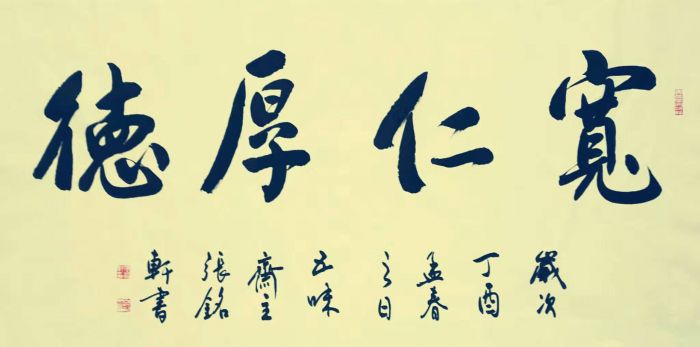 寬仁厚德
歲次
丁酉
孟春
之日
五味
齋主
張銘
軒書